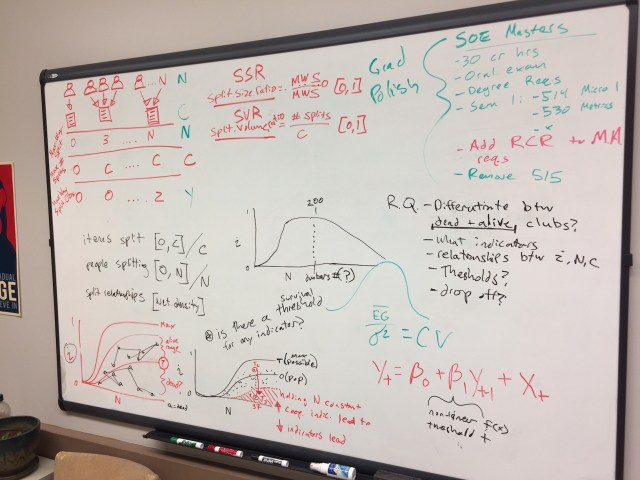 N
C
N
0 3 .... N
0 C .... C C
0 0 .... 2 Y
SSR
Split Size Ratio = MWS
MWS
[0,1]
SVR
Split Volume ratio = # splits
C
[0,1]
Grad
Polish
SOE Masters
- 30 cr hrs
- Oral exam
- Degree Reqs
- Sem 1: - 514 Micro 1
- 530 Metrics
- Add RCR to MA
reqs
- Remove 515
items split [0,C]/C
people splitting [0,N]/N
split relationships [Net density]
1
i
0
200
N
dunbars # (?)
survival
threshold
is there a
for any indicator?
R.Q. - Differentiate btw
dead + alive clubs?
- what indicators
- relationships btw i, N, C
- Thesholds?
- drop off?
EG
σ² = CV
Yt = β0 + β1 Yt-1 + Xt
non-linear f(x)
threshold t
1
i
0
Max
alive
range
T
dead
N
1
i
0
T (max possible)
O (pop)
N
holding N constant
comp. indic. lead to
indicators lead